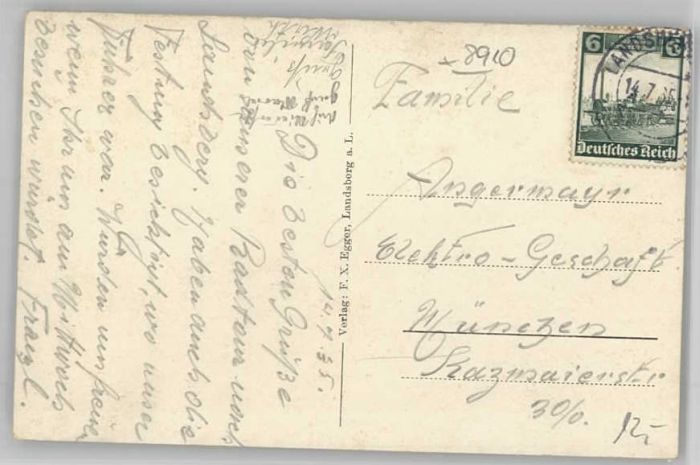 14.7.35.
Die besten Grüße
von unserer Radtour nach
Landsberg. Haben auch die
Festung besichtigt, wo unser
Führer war. Würden uns freuen
wenn Ihr uns am Mittwoch
besuchen würdet. Franzl.
Verlag: F. X. Egger, Landsberg a. L.
8910
6
LANDSB
14.7.35
Deutsches Reich
Familie
Angermayr
Elektro-Geschäft
München
Kazmaierstr
30/0.
12,-